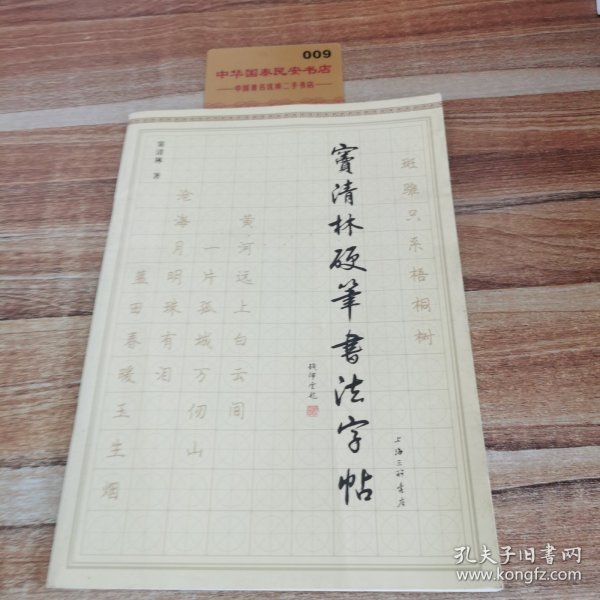 009
中华国泰民安书店
中国著名珠峰二手书店
斑骓只系梧桐树
窦清林硬笔书法字帖
钱沛云题
上海三联书店
黄河远上白云间
一片孤城万仞山
沧海月明珠有泪
蓝田春暖玉生烟
窦清林 著
孔夫子旧书网
www.kongfz.com